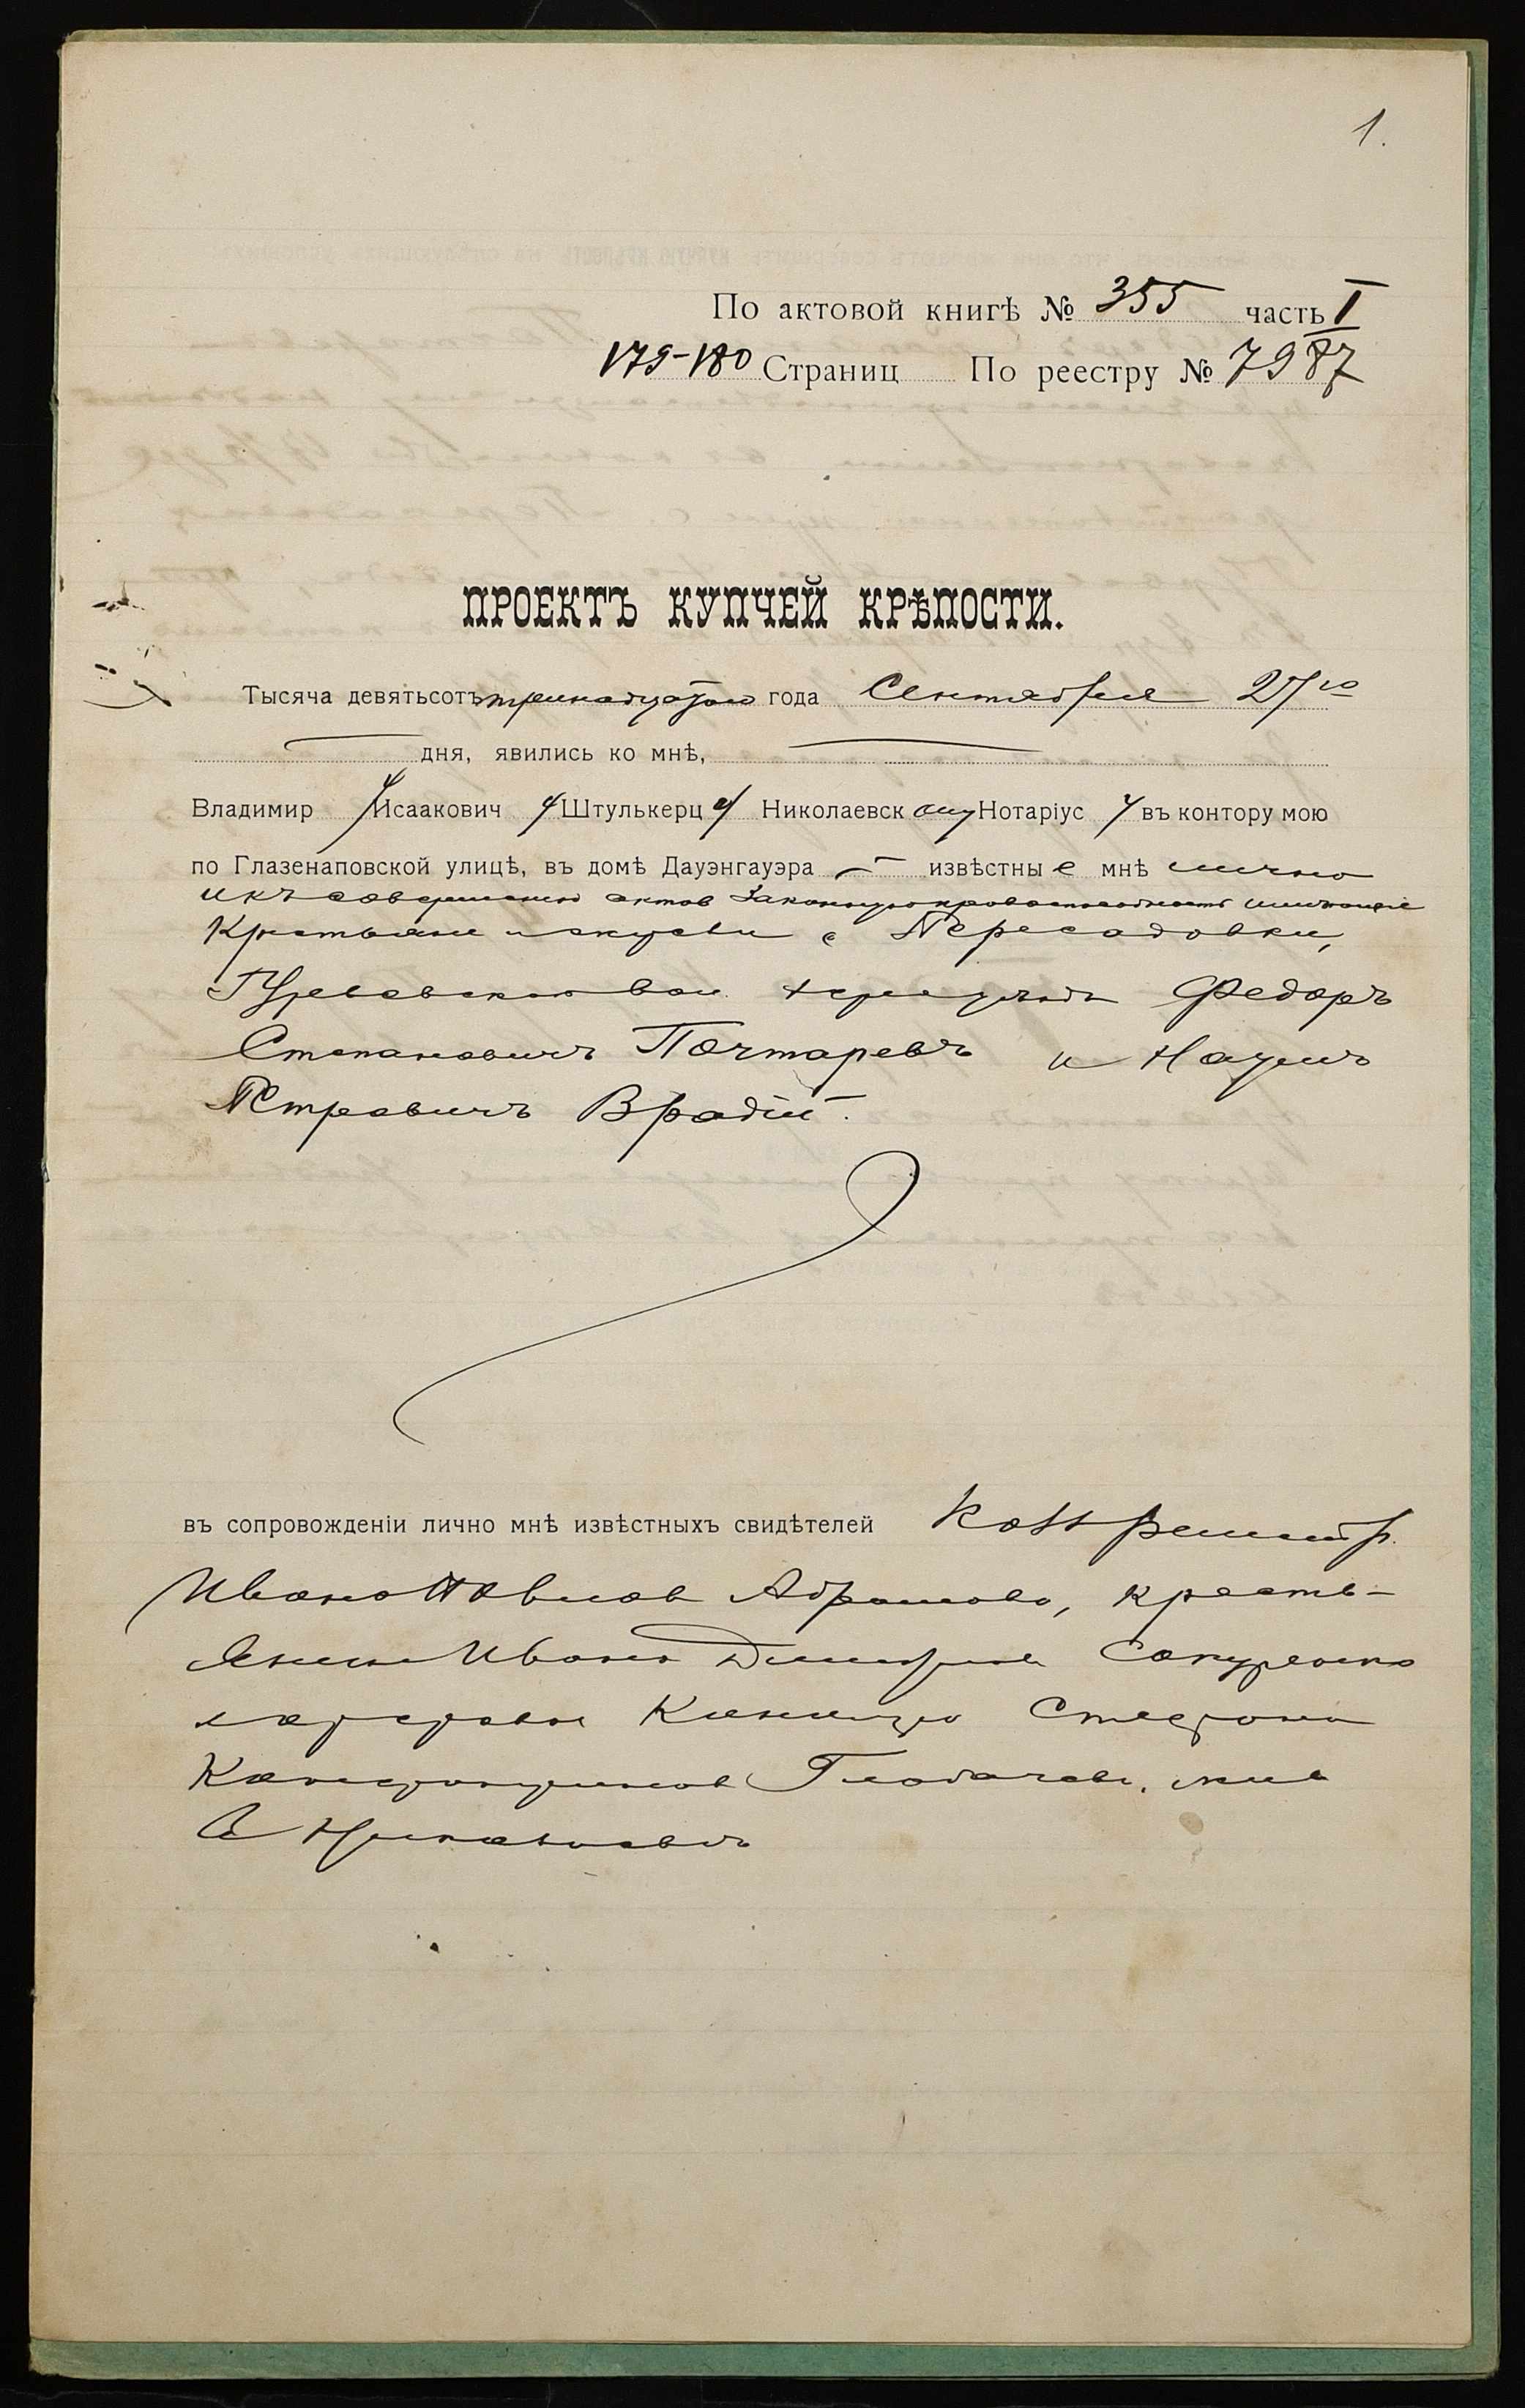 1.
По актовой книгѣ № 355 часть I
179-180 Страниц По реестру № 7987
ПРОЕКТЪ КУПЧЕЙ КРѢПОСТИ.
Тысяча девятьсотъ тринадцатаго года Сентября 27го
дня, явились ко мнѣ,
Владимир Исаакович Штулькерц Николаевск Нотаріус въ контору мою
по Глазенаповской улицѣ, въ домѣ Дауэнгауэра извѣстны е мнѣ лично
и къ совершенію актов законную правоспособность имѣющіе
Крестьяне с Пересадовки,
Федоръ
Степановичъ Почтаревъ и Наумъ
Петровичъ Врадій.
въ сопровожденіи лично мнѣ извѣстныхъ свидѣтелей Колл Регистр.
Ивана Павлов Абрамова, кресть-
янина Ивана Димитріев
Стефана
живъ
въ Николаевѣ